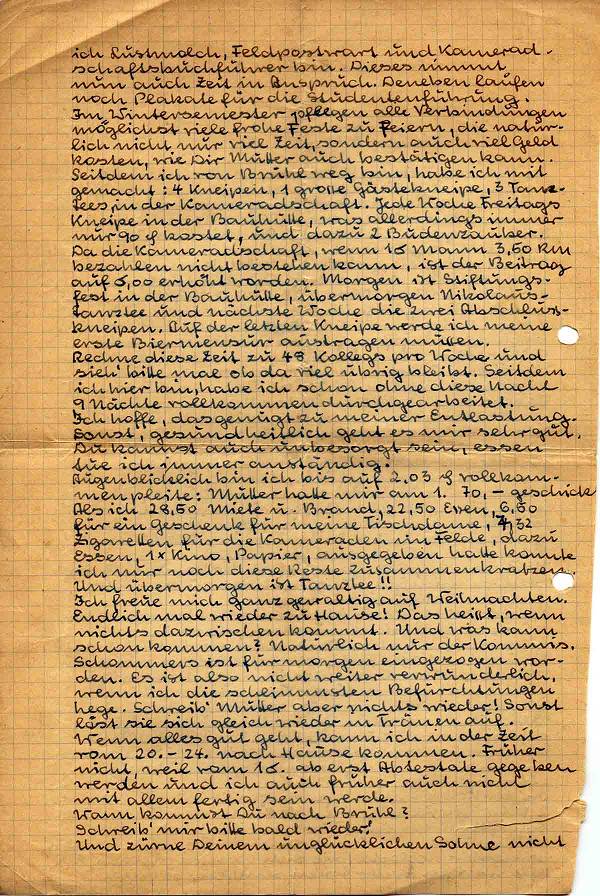 ich Lustmolch, Feldpostwart und Kamerad-
schaftsbuchführer bin. Dieses nimmt
nun auch Zeit in Anspruch. Daneben laufen
noch Plakate für die Studentenführung.
Im Wintersemester pflegen alle Verbindungen
möglichst viele frohe Feste zu feiern, die natür-
lich nicht nur viel Zeit, sondern auch viel Geld
kosten, wie Dir Mutter auch bestätigen kann.
Seitdem ich von Brühl weg bin, habe ich mit
gemacht: 4 Kneipen, 1 große Gästekneipe, 3 Tanz-
tees, in der Kameradschaft. Jede Woche Freitags
Kneipe in der Bauhütte, was allerdings immer
nur 90 ₰ kostet, und dazu 2 Budenzauber.
Da die Kameradschaft, wenn 15 Mann 3,50 RM
bezahlen nicht bestehen kann, ist der Beitrag
auf 5,00 erhöht worden. Morgen ist Stiftungs-
fest in der Bauhütte, übermorgen Nikolaus-
tanztee und nächste Woche die zwei Abschluß-
kneipen. Auf der letzten Kneipe werde ich meine
erste Biermensur austragen müssen.
Rechne diese Zeit zu 48 Kollegs pro Woche und
sieh' bitte mal ob da viel übrig bleibt. Seitdem
ich hier bin, habe ich schon ohne diese Nacht
9 Nächte vollkommen durchgearbeitet.
Ich hoffe, das genügt zu meiner Entlastung.
Sonst, gesundheitlich geht es mir sehr gut.
Du kannst auch unbesorgt sein, essen
tue ich immer anständig.
Augenblicklich bin ich bis auf 2.03 ₰ vollkom-
men pleite: Mutter hatte mir am 1. 70,– geschickt
Als ich 28,50 Miete u. Brand, 22,50 Essen, 6,50
für ein Geschenk für meine Tischdame, 4,32
Zigaretten für die Kameraden im Felde, dazu
Essen, 1x Kino, Papier, ausgegeben hatte konnte
ich nur noch diese Reste zusammenkratzen.
Und übermorgen ist Tanztee!!
Ich freue mich ganz gewaltig auf Weihnachten.
Endlich mal wieder zu Hause! Das heißt, wenn
nichts dazwischen kommt. Und was kann
schon kommen? Natürlich nur der Kommis.
Schommers ist für morgen eingezogen wor-
den. Es ist also nicht weiter verwunderlich,
wenn ich die schlimmsten Befürchtungen
hege. Schreib' Mutter aber nichts wieder! Sonst
löst sie sich gleich wieder in Tränen auf.
Wenn alles gut geht, kann ich in der Zeit
vom 20.–24. nach Hause kommen. Früher
nicht, weil vom 15. ab erst Abtestate gegeben
werden und ich auch früher auch nicht
mit allem fertig sein werde.
Wann kommst Du nach Brühl?
Schreib' mir bitte bald wieder!
Und zürne Deinem unglücklichen Sohne nicht